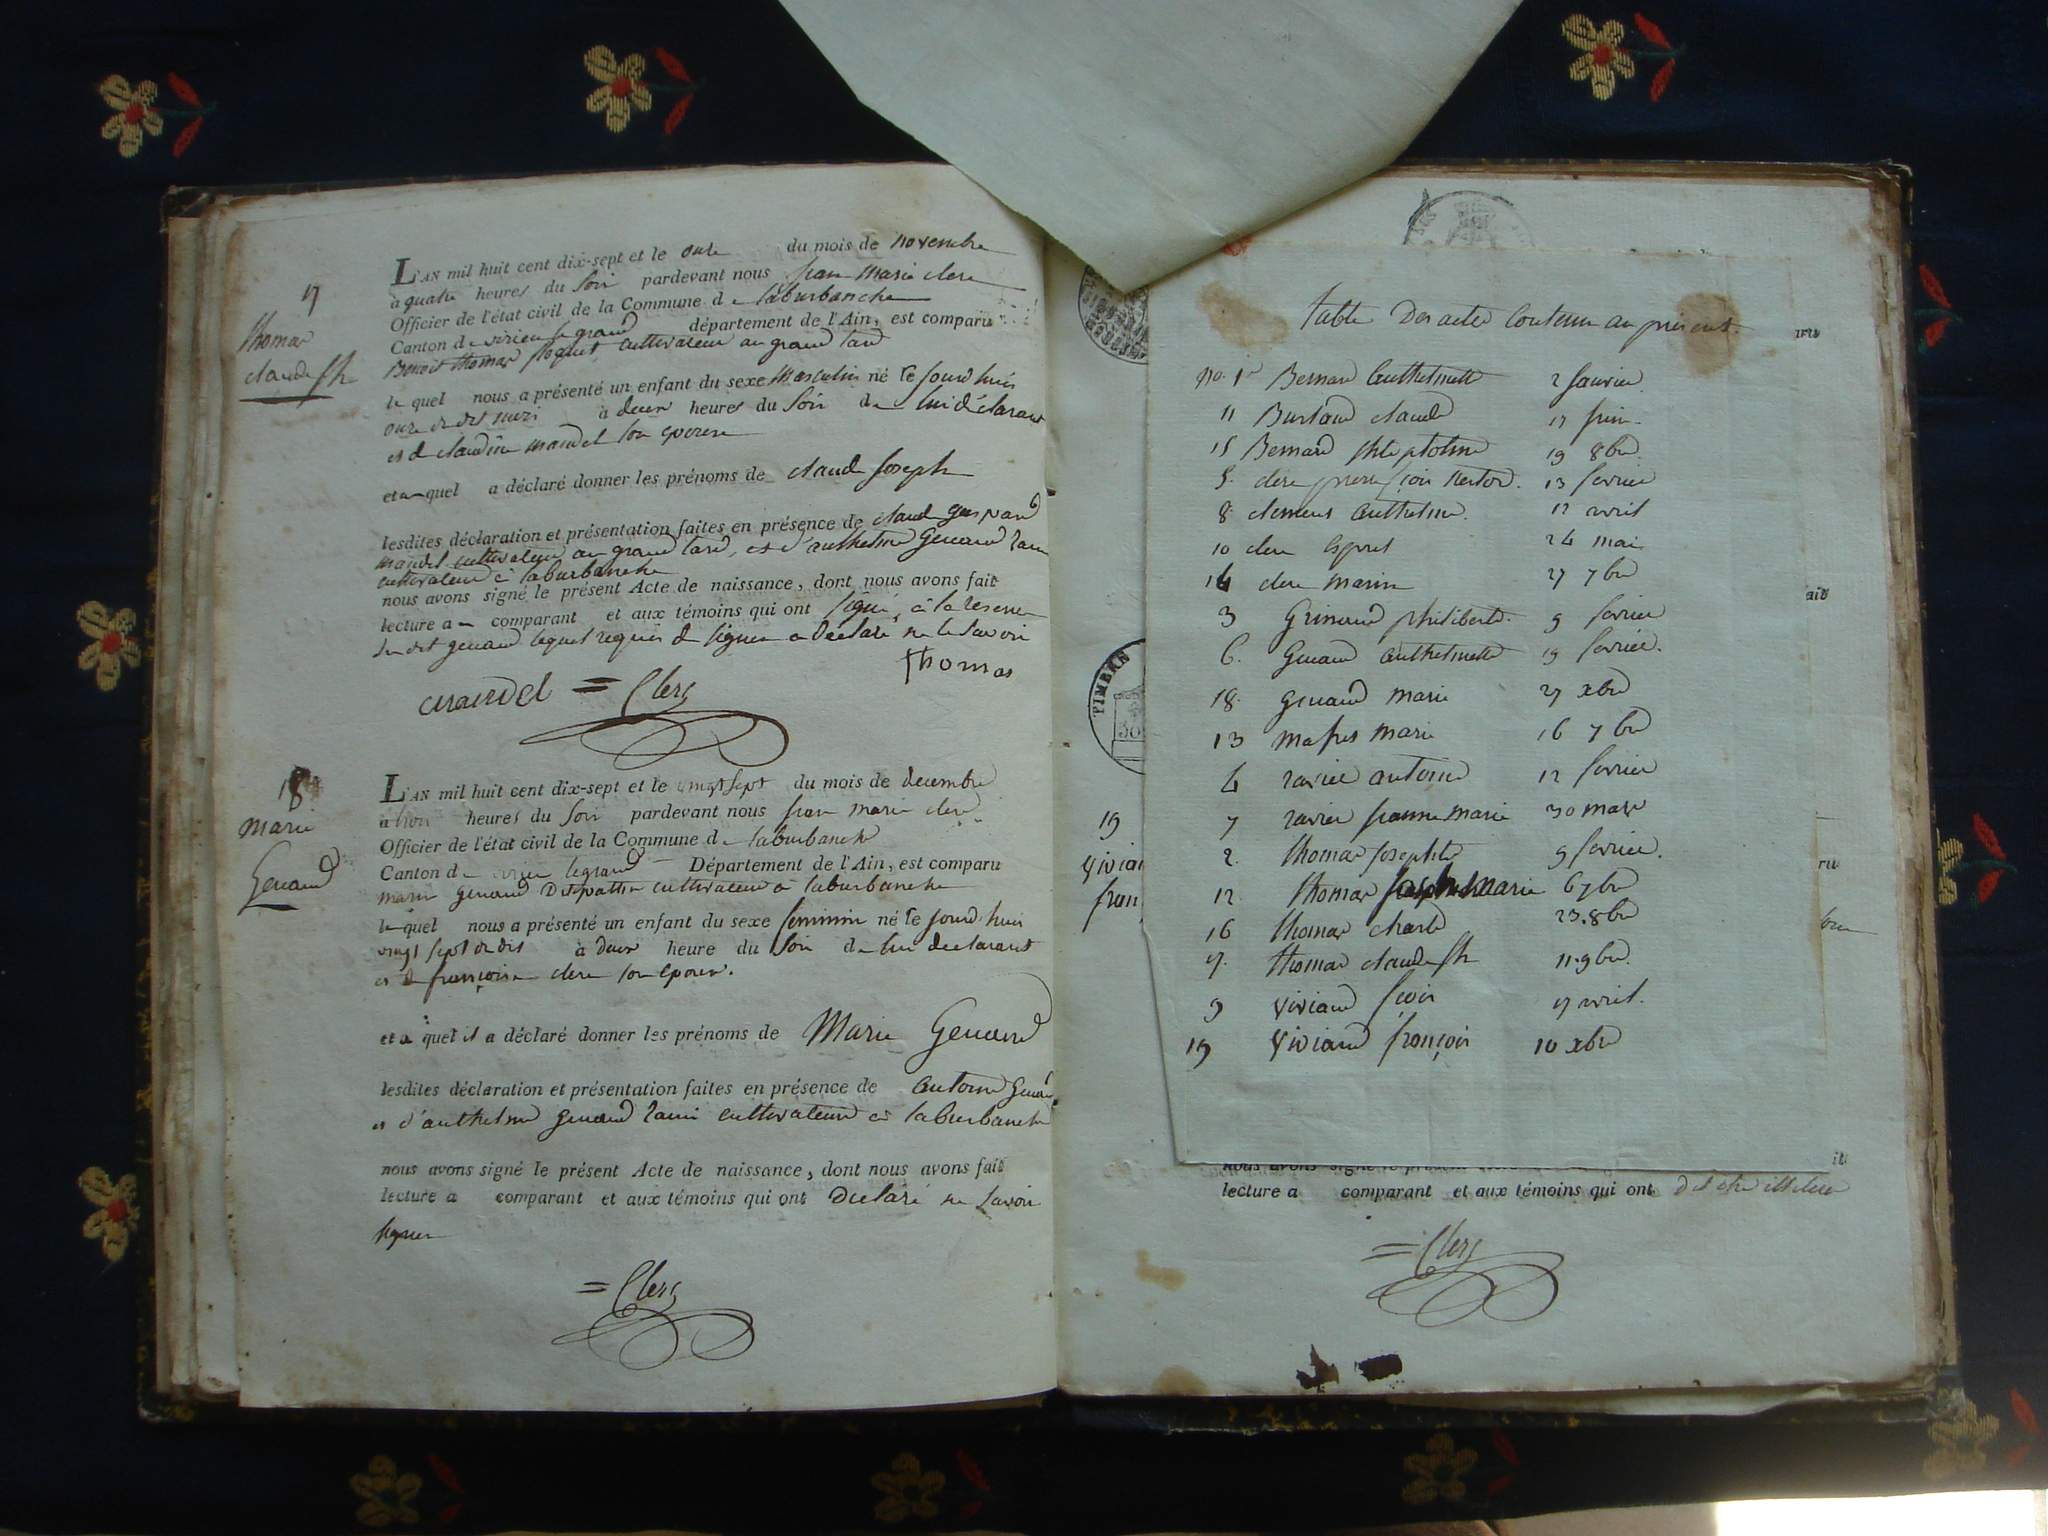 17
thomas
claude jh
L'AN mil huit cent dix-sept et le onze du mois de novembre
à quatre heures du soir pardevant nous jean marie clerc
Officier de l'état civil de la Commune de laburbanche
Canton de virieu le grand département de l'Ain, est comparu
Benoit thomas cultivateur au grand
le quel nous a présenté un enfant du sexe masculin né le jourd'huis
onze de ce mois à deux heures du soir de lui déclarant
et de claudine mandel son epouse
et au quel a déclaré donner les prénoms de claude joseph
lesdites déclaration et présentation faites en présence de claude gaspard
mandel cultivateur au grand et d'anthelme Genaud
cultivateur à laburbanche
nous avons signé le présent Acte de naissance, dont nous avons fait
lecture au comparant et aux témoins qui ont signé, à la reserve
du dit genaud lequel requis de signer a declaré ne le savoir
thomas
mandel = Clerc
18
marie
Genaud
L'AN mil huit cent dix-sept et le vingt sept du mois de decembre
à trois heures du soir pardevant nous jean marie clerc
Officier de l'état civil de la Commune de laburbanche
Canton de virieu legrand Département de l'Ain, est comparu
marin genaud cultivateur à laburbanche
le quel nous a présenté un enfant du sexe feminin né le jourd'huis
vingt sept de à deux heure du soir de lui declarant
et de françoise clerc son epouse.
et au quel il a déclaré donner les prénoms de Marie Genaud
lesdites déclaration et présentation faites en présence de antoine genaud
et d'anthelme genaud cultivateur à laburbanche
nous avons signé le présent Acte de naissance, dont nous avons fait
lecture a comparant et aux témoins qui ont declaré ne savoir
signer
= Clerc
TIMBRE
19
vivian
fran
table Des actes Contenu au présent.
No. 1er Bernard Anthelmette 2 janvier
11 Burtaud claude 17 juin.
15 Bernard 19 8bre.
5. clerc pierre nestor. 13 fevrier
8 clement anthelme. 12 avril
10 clerc esprit 24 mai
14 clerc marin 27 7bre
3 Grinand philiberte. 9 fevrier
6. Genaud anthelmette 19 fevrier.
18. genaud marie 27 xbre
13 marie 16 7bre
4 ravier antoine 12 fevrier
7 ravier jeanne marie 30 mars
2. thomas josephte 9 fevrier.
12. thomas marie 6 7bre
16 thomas charle 23. 8bre
17. thomas claude jh 11. 9bre.
9 viviand 17 avril.
19 viviand françois 10 xbre
nous avons signé le présent
lecture a comparant et aux témoins qui ont dit etre illiteré
= Clerc